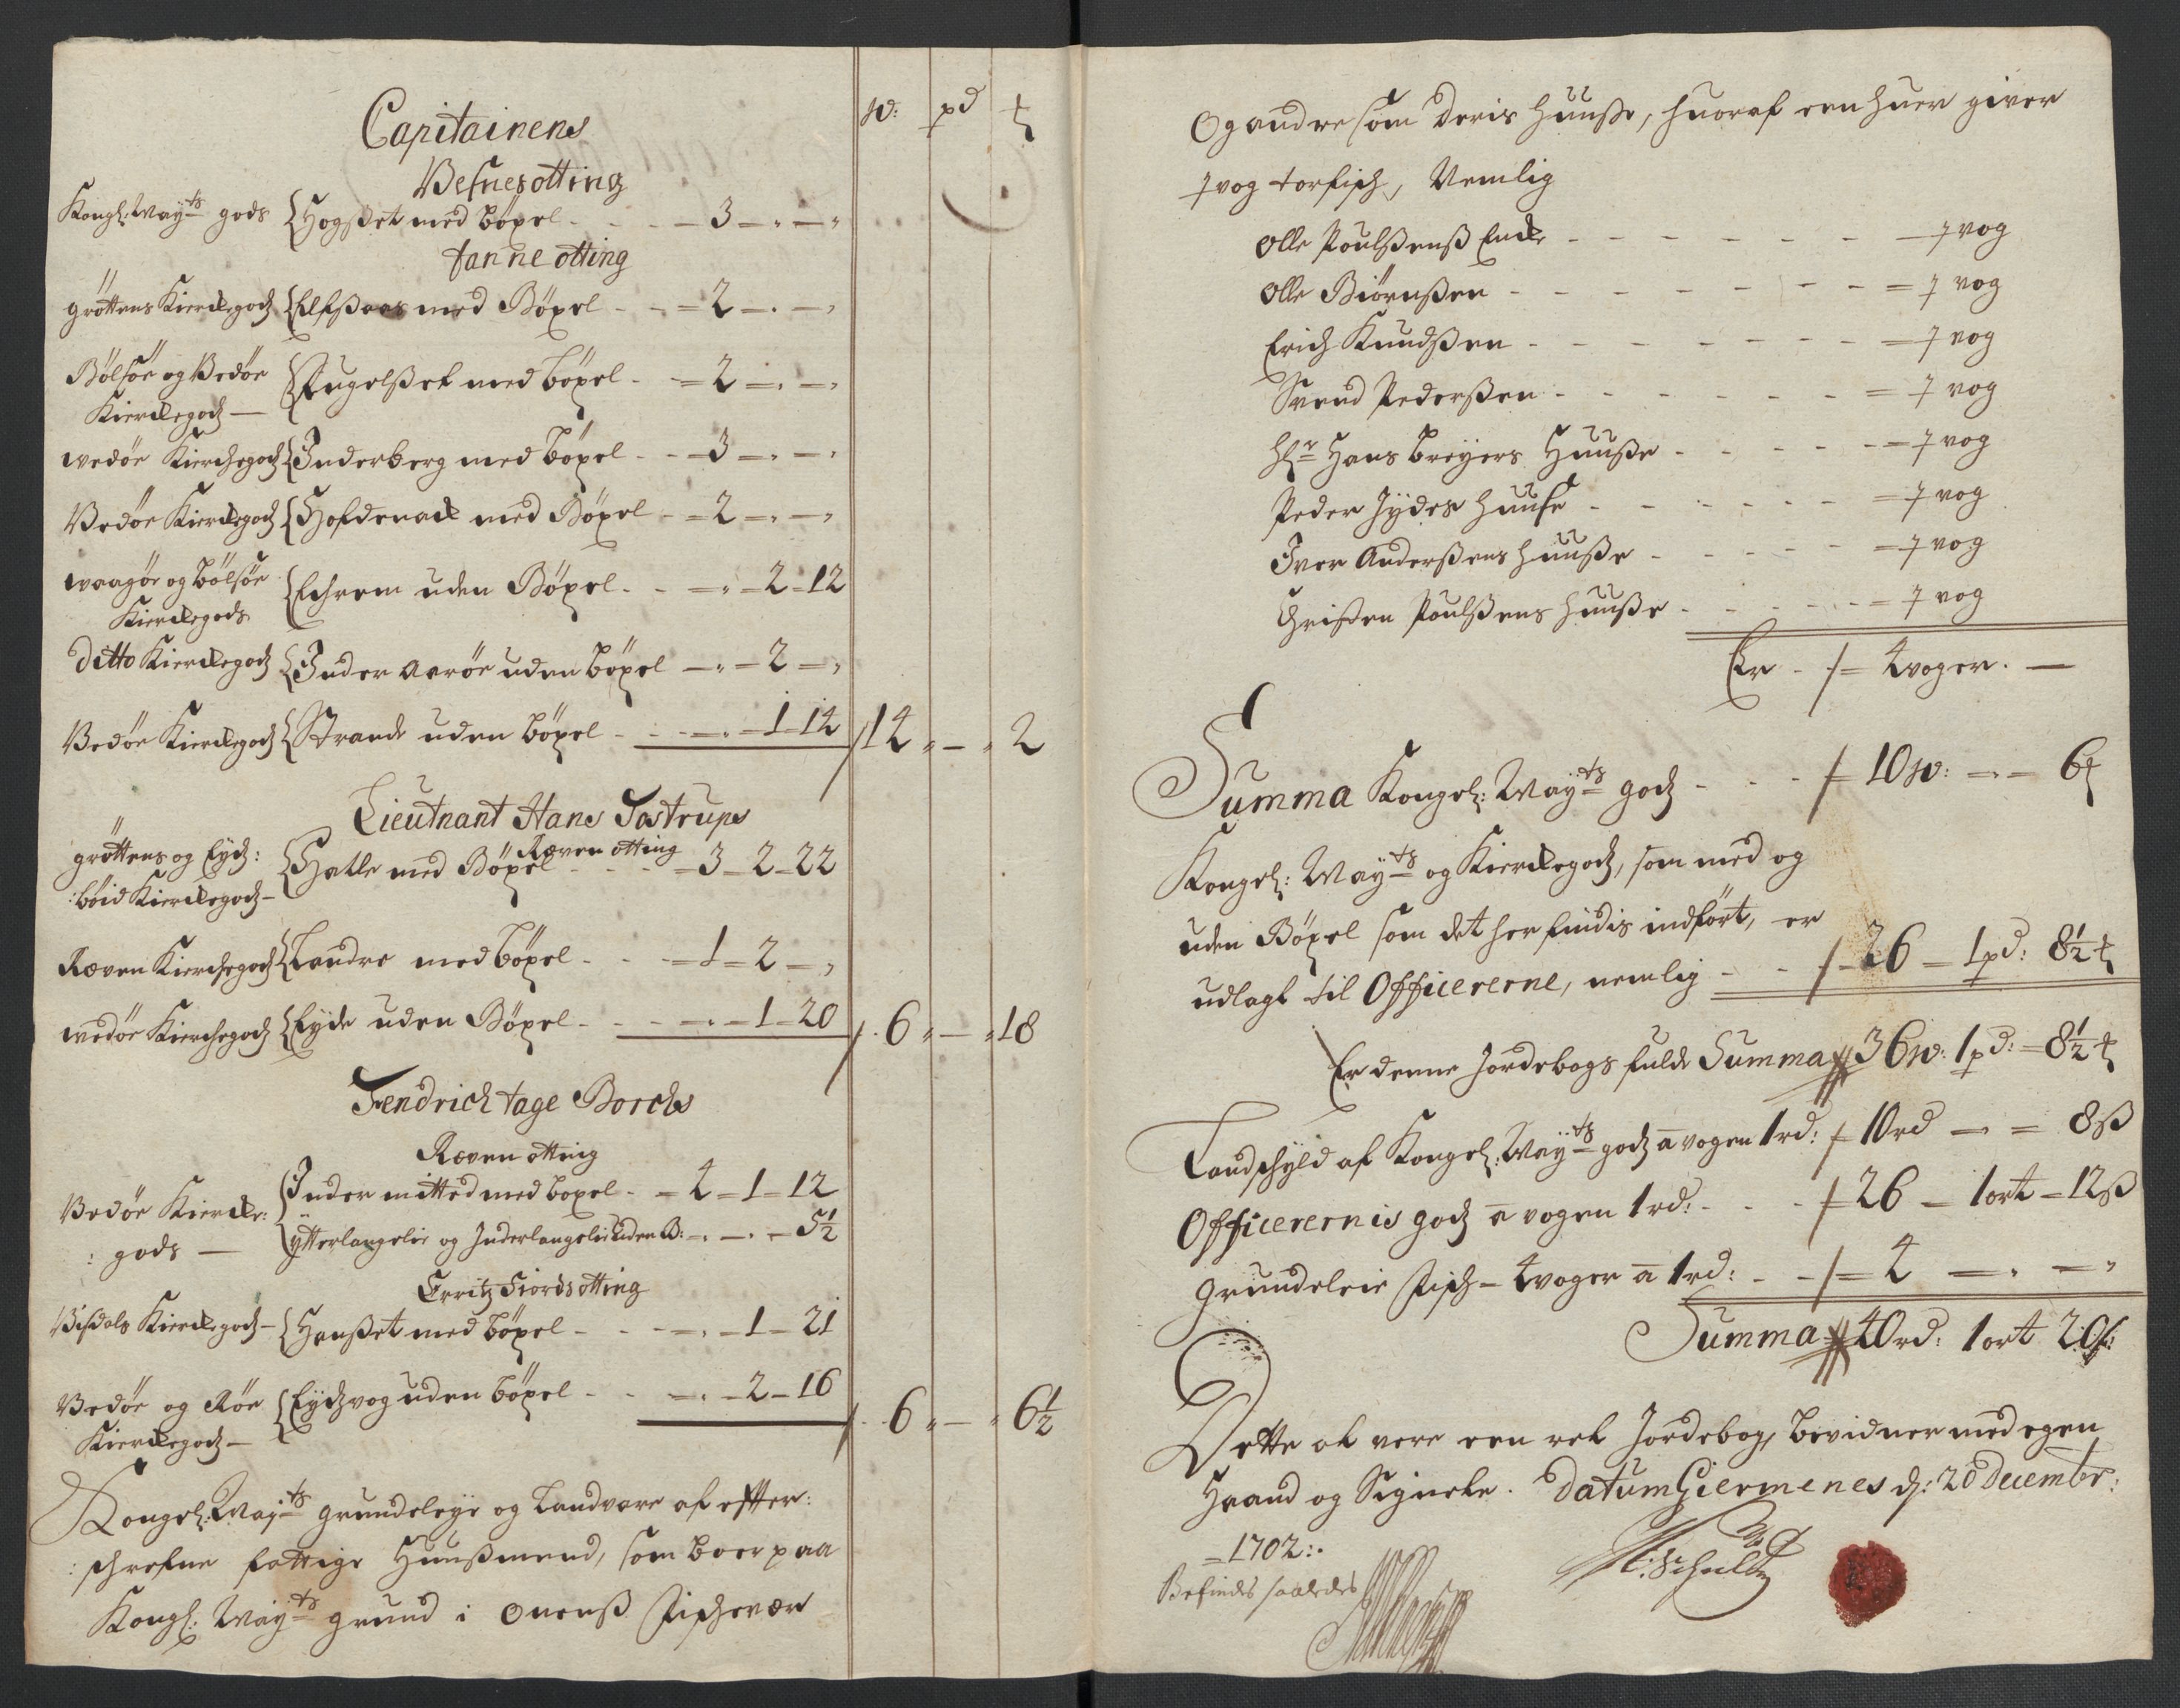 w: pd ℔
Capitainens
Vefnes otting
Kongl: May:ts gods {Hogset med böxel - - - 3 - " - "
fanne otting
gröttens Kierckegodz {Elfsaas med Böxel - - 2 - " - "
Bölsöe og Vedöe
Kierckegodz — {Fugelset med böxel - - 2 - " - "
wedöe Kierchegodz {Inderberg med böxel - - 3 - " - "
Vedöe Kierckegodz {Hofdenack med Böxel - - 2 - " - "
waagöe og bölsöe
Kierckegods {Echrem uden Böxel - - " - 2 - 12
ditto Kierckegodz {Inder Aaröe uden böxel - " - 2 - "
Vedöe Kierckegodz {Strande uden böxel - - - " - 1 - 14 / 14 " - " 2
Lieutnant Hans Tostrups
Ræven otting
gröttens og Eydz:
:böid Kierckegodz - {Hatle med Böxel - - - 3 - 2 - 22
Ræven Kierchegodz {Landre med böxel - - - 1 - 2 - "
wedöe Kierchegodz {Eyde uden Böxel - - - " - 1 - 20 / 6 " - " 18
Fendrich tage Borchs
Ræven otting
Vedöe Kiercke:
: gods — {Inder mitted med boxel - 4 - 1 - 12
ytterlangelie og Inderlangelie uden B: - " - " - 5½
Erritz Fiords otting
Visdals Kierckegodz - {Hauset med böxel - - - " - 1 - 21
Vedöe og Röe
Kierckegodz — {Eydzvog uden böxel - - - " - 2 - 16 / 6 " - " 6½
Kongel: May:ts grundeleye og Landvare af effter:
:schrefne fattige Huusmend, som boer paa
Kongl: May:ts grund i Onens Fischevær
Og andre som deris Huuse, huoraf een huer giver
½ vog torfisch, Nemlig
Olle Poulsens Encke - - - - - ½ vog
Olle Biörnsen - - - - - - ½ vog
Erich Knudsen - - - - - - ½ vog
Svend Pedersen - - - - - - ½ vog
Hr Hans breyers Huuse - - - - ½ vog
Peder Jydes huuse - - - - - ½ vog
Iver Andersens huuse - - - - ½ vog
Christen Poulsens huuse - - - - ½ vog
Er - /= 4 voger. —
Summa Kongel: May:ts godz - - - / 10 w: - " - 6 ℔
Kongel: May:ts og Kierckegodz, som med og
uden Böxel som det her findis indfört, er
udlagt til Officererne, nemlig - - / - 26 - 1 pd: 8½ ℔
Er denne Jordebogs fulde Summa // 36 w: 1 pd: - 8½ ℔
Landschyld af Kongel: May:ts godz a vogen 1 rd: / 10 rd - " - 8 ß
Officerernis godz a vogen 1 rd: - - - / 26 - 1 ort - 12 ß
grundeleie Fisch - 4 voger a 1 rd: - - / - 4 - " - "
Summa // 40 rd: 1 ort 20 ß:
Dette at vere een ret Jordebog, bevidner med egen
Haand og Signete. datum Giermenes d: 20 Decembr:
- 1702:.
Befindes saaledes